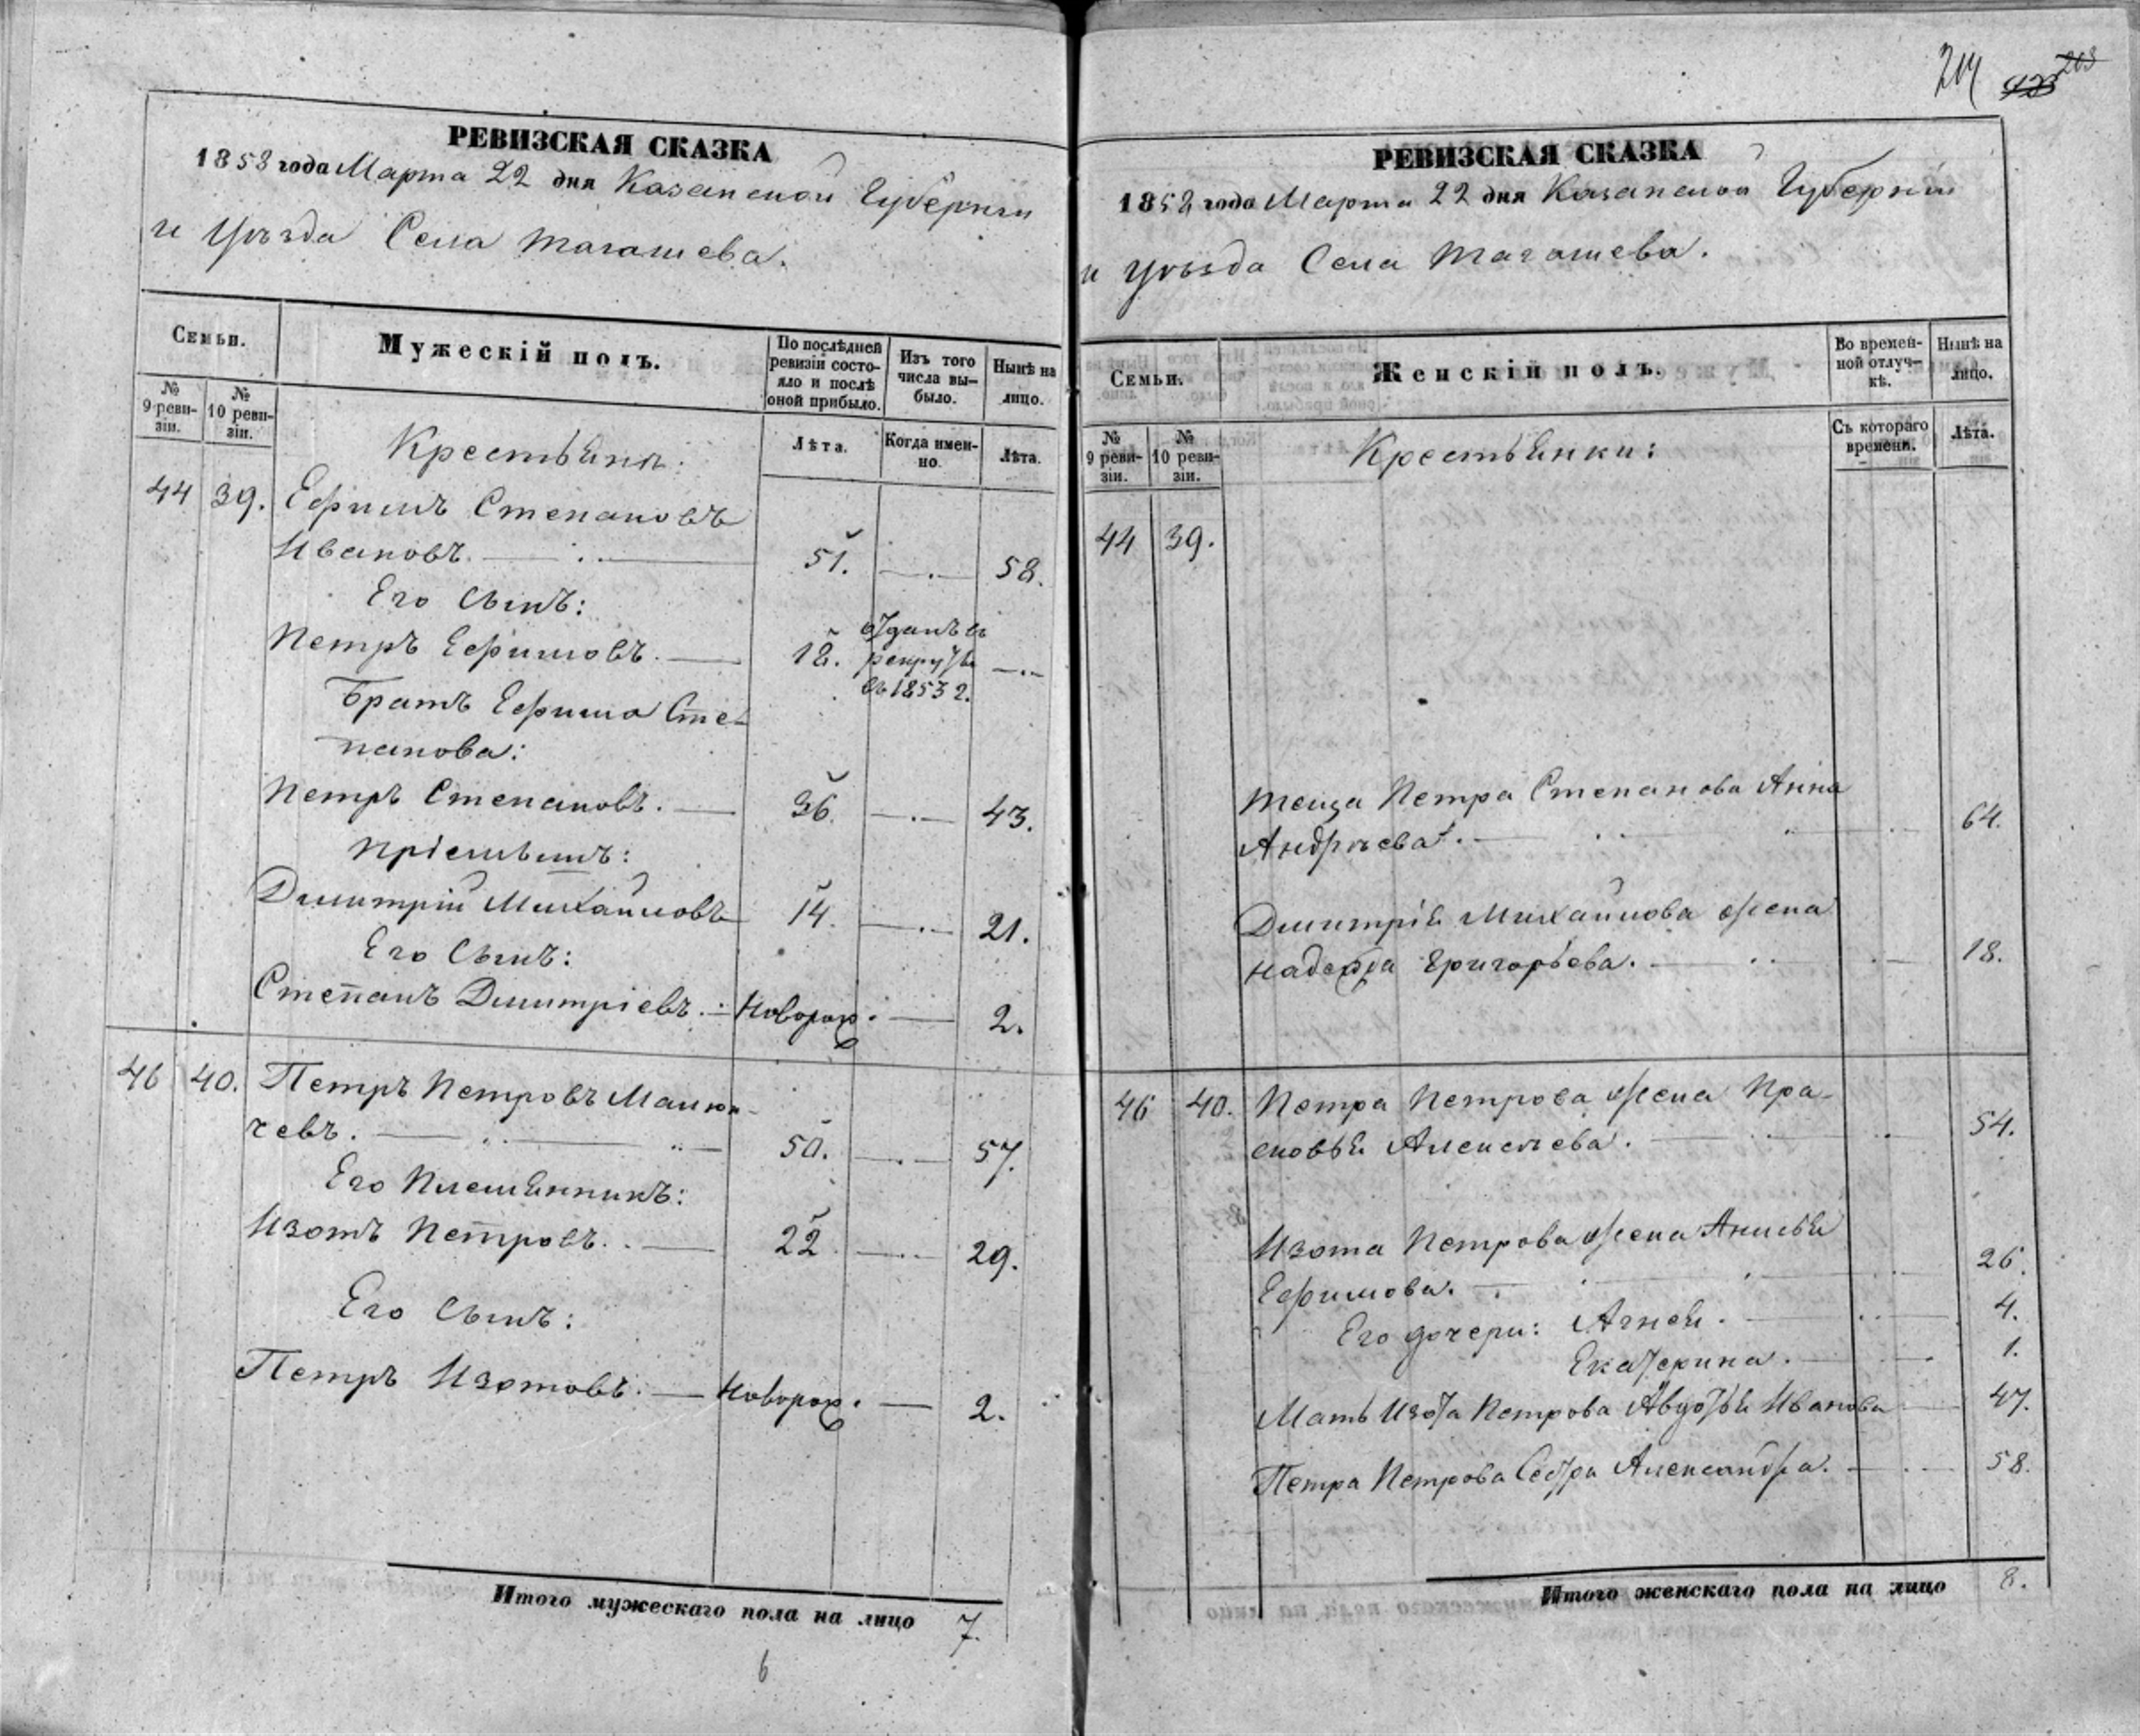 РЕВИЗСКАЯ СКАЗКА
1858 года Марта 22 дня Казанской Губернии
и Уѣзда Села Тагашева.
Семьи.
Мужескій полъ.
По послѣдней ревизіи состояло и послѣ оной прибыло.
Изъ того числа выбыло.
Нынѣ на лицо.
№ 9 ревизіи.
№ 10 ревизіи.
Лѣта.
Когда именно.
Лѣта.
Крестьяня:
44 39. Ефимъ Степановъ
Ивановъ. 51. 58.
Его сынъ:
Петръ Ефимовъ. 18. отданъ въ рекруты въ 1853 г.
Братъ Ефима Сте-
панова:
Петръ Степановъ. 36. 43.
Пріемышъ:
Димитрій Михайловъ 14. 21.
Его сынъ:
Степанъ Димитріевъ. Новорож. 2.
46 40. Петръ Петровъ
чевъ. 50. 57.
Его Племянникъ:
Изотъ Петровъ. 22. 29.
Его сынъ:
Петръ Изотовъ. Новорож. 2.
Итого мужескаго пола на лицо 7.
6
214 203
РЕВИЗСКАЯ СКАЗКА
1858 года Марта 22 дня Казанской Губерніи
и Уѣзда Села Тагашева.
Семьи.
Женскій полъ.
Во временной отлучкѣ.
Нынѣ на лицо.
№ 9 ревизіи.
№ 10 ревизіи.
Съ котораго времени.
Лѣта.
Крестьянки:
44 39.
Теща Петра Степанова Анна
Андреева. 64.
Димитрія Михайлова жена
Надежда Григорьева. 18.
46 40. Петра Петрова жена Пра-
сковья Алексеева. 54.
Изота Петрова жена Анисья
Ефимова. 26.
Его дочери: Агнея. 4.
Екатерина. 1.
Мать Изота Петрова Авдотья Иванова 47.
Петра Петрова Сестра Александра. 58.
Итого женскаго пола на лицо 8.